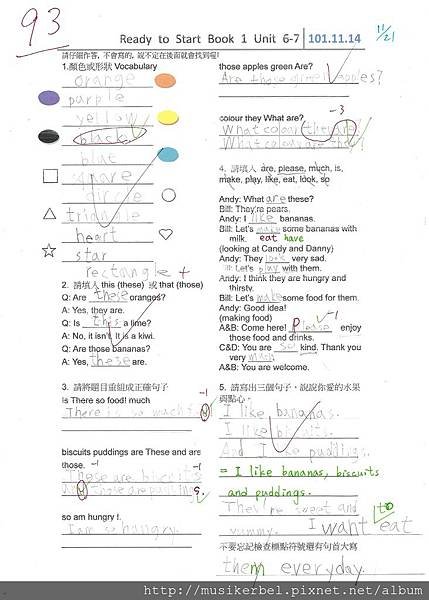 93
Ready to Start Book 1 Unit 6-7 101.11.14
11/21
請仔細作答, 不會寫的, 說不定在後面就會找到喔!
1.顏色或形狀 Vocabulary
orange
purple
yellow
black
blue
square
circle
triangle
heart
star
rectangle
2. 請填入 this (these) 或 that (those)
Q: Are these oranges?
A: Yes, they are.
Q: Is this a lime?
A: No, it isn't. It is a kiwi.
Q: Are those bananas?
A: Yes, these are.
3. 請將題目重組成正確句子
Is There so food! much
There is so much f
-1
biscuits puddings are These and are
those.
-1
-1
These are biscuits
those are puddings.
so am hungry I.
I am so hungry.
those apples green Are?
Are those green apples?
colour they What are?
-3
What colour they are
What colour are they?
4. 請填入 are, please, much, is,
make, play, like, eat, look, so
Andy: What are these?
Bill: They're pears.
Andy: I like bananas.
Bill: Let's make some bananas with
milk. eat have
(looking at Candy and Danny)
Andy: They look very sad.
Bill: Let's play with them.
Andy: I think they are hungry and
thirsty.
Bill: Let's make some food for them.
Andy: Good idea!
(making food)
-1
A&B: Come here! please enjoy
those food and drinks.
C&D: You are so kind. Thank you
very much.
A&B: You are welcome.
5. 請寫出三個句子, 說說你愛的水果
與點心。
I like bananas.
I like biscuits.
And I like puddings.
= I like bananas, biscuits
and puddings.
They're sweet and
yummy. I want to eat
不要忘記檢查標點符號還有句首大寫
them everyday.
http://musikerbel.pixnet.net/album